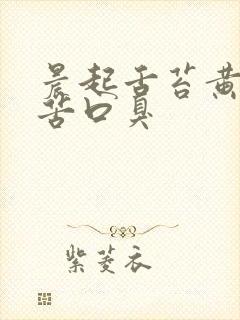 晨起舌苔黄
苦口臭
紫菱衣